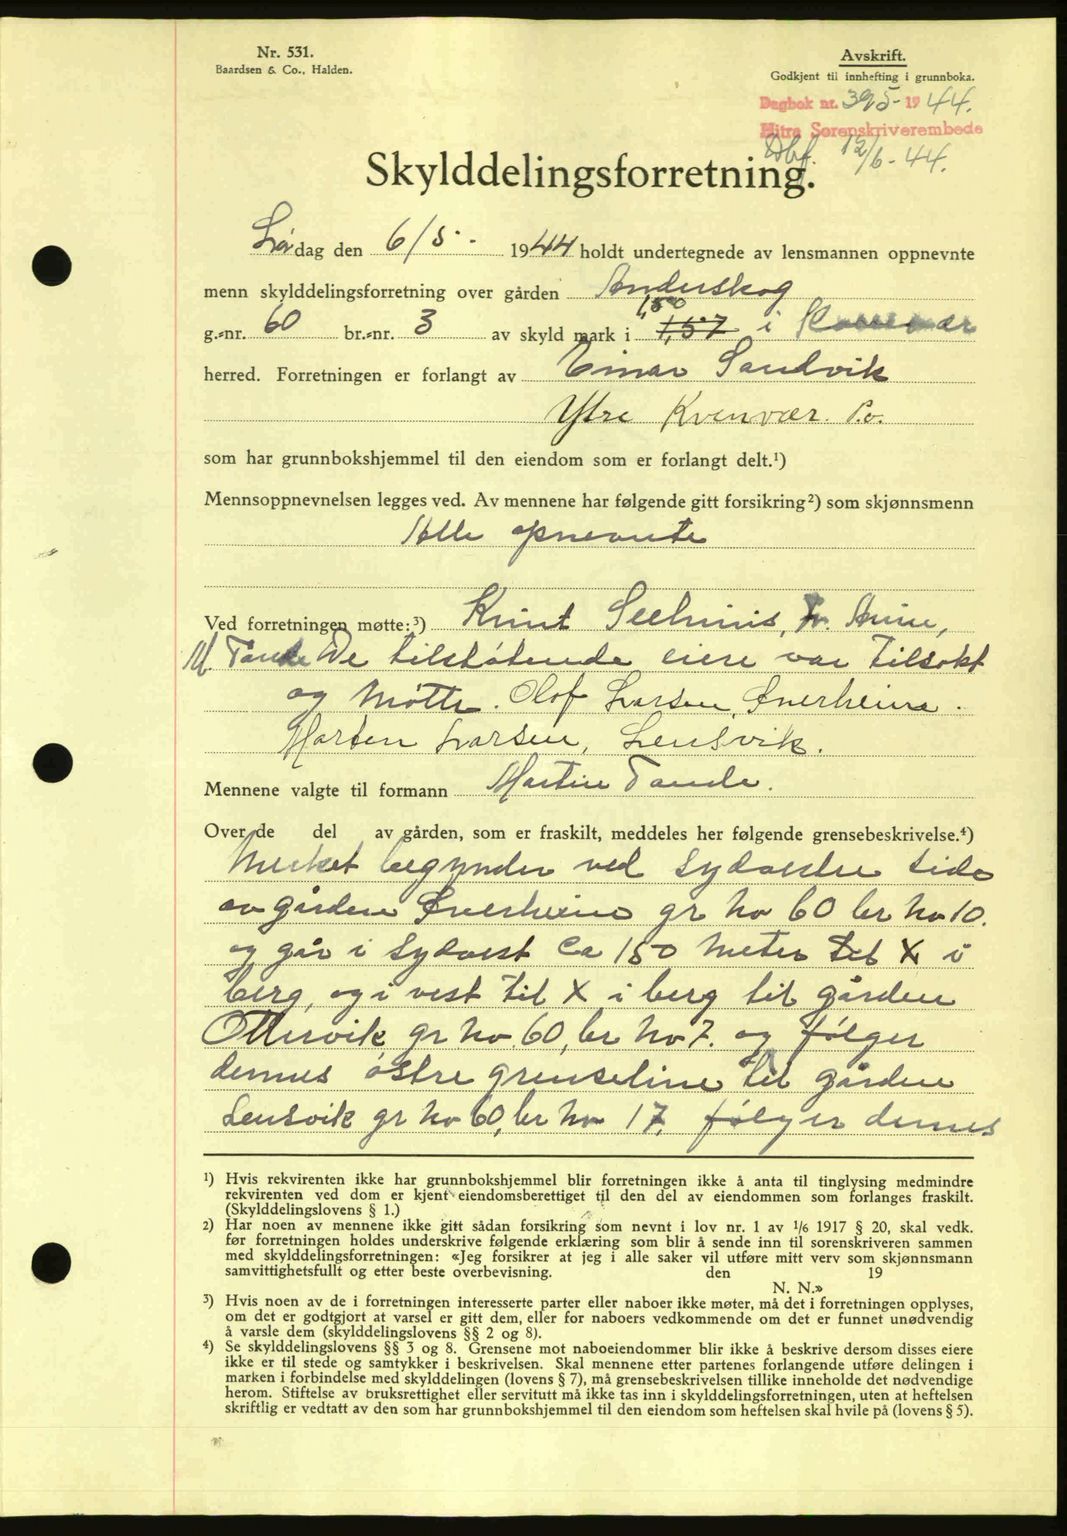 Nr. 531.
Baardsen & Co., Halden.
Avskrift.
Godkjent til innhefting i grunnboka.
Dagbok nr. 395-1944.
Hitra Sorenskriverembede
Dbf. 12/6-44.
Skylddelingsforretning.
Lørdag den 6/5. - 1944 holdt undertegnede av lensmannen oppnevnte
menn skylddelingsforretning over gården Anderskog
1,50
g.-nr. 60 br.-nr. 3 av skyld mark i 1,57 i Kvenvær
herred. Forretningen er forlangt av Einar Sandvik
Ytre Kvenvær. P.o.
som har grunnbokshjemmel til den eiendom som er forlangt delt.¹)
Mennsoppnevnelsen legges ved. Av mennene har følgende gitt forsikring²) som skjønnsmenn
Alle opnevnte
Ved forretningen møtte:³) Knut
M. Tande De tilstøtende eiere var tilsakt
og Møtte. Olof Larsen,
Marten Larsen, Lensvik.
Mennene valgte til formann Martin Tande.
Over de del av gården, som er fraskilt, meddeles her følgende grensebeskrivelse.⁴)
Merket begynder ved sydvestre side
av gården gr no 60 br no 10.
og går i sydvest ca 150 meter til X i
berg, og i vest til X i berg til gården
Ottersvik gr. no. 60, br no 7. og følger
dennes østre grenseline til gården
Lensvik gr no 60, br no 17, følger dennes
¹) Hvis rekvirenten ikke har grunnbokshjemmel blir forretningen ikke å anta til tinglysing medmindre
rekvirenten ved dom er kjent eiendomsberettiget til den del av eiendommen som forlanges fraskilt.
(Skylddelingslovens § 1.)
²) Har noen av mennene ikke gitt sådan forsikring som nevnt i lov nr. 1 av 1/6 1917 § 20, skal vedk.
før forretningen holdes underskrive følgende erklæring som blir å sende inn til sorenskriveren sammen
med skylddelingsforretningen: «Jeg forsikrer at jeg i alle saker vil utføre mitt verv som skjønnsmann
samvittighetsfullt og etter beste overbevisning. den 19
N. N.»
³) Hvis noen av de i forretningen interesserte parter eller naboer ikke møter, må det i forretningen opplyses,
om det er godtgjort at varsel er gitt dem, eller for naboers vedkommende om det er funnet unødvendig
å varsle dem (skylddelingslovens §§ 2 og 8).
⁴) Se skylddelingslovens §§ 3 og 8. Grensene mot naboeiendommer blir ikke å beskrive dersom disses eiere
ikke er til stede og samtykker i beskrivelsen. Skal mennene etter partenes forlangende utføre delingen i
marken i forbindelse med skylddelingen (lovens § 7), må grensebeskrivelsen tillike inneholde det nødvendige
herom. Stiftelse av bruksrettighet eller servitutt må ikke tas inn i skylddelingsforretningen, uten at heftelsen
skriftlig er vedtatt av den som har grunnbokshjemmel til den eiendom som heftelsen skal hvile på (lovens § 5).